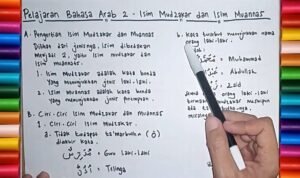 Pelajaran Bahasa Arab 2 - Isim Mudzakar dan Isim Muannas
A. Pengertian Isim Mudzakar dan Muannas
Dilihat dari jenisnya, isim dibedakan
menjadi 2, yaitu isim mudzakar dan
muannas.
1. Isim mudzakar adalah kata benda
yang menunjukkan jenis laki-laki.
2. Isim muannas adalah kata benda
yang menunjukkan jenis perempuan.
B. Ciri-Ciri Isim Mudzakar dan Muannas
1. Ciri-Ciri Isim Mudzakar
a. Tidak terdapat ta'marbuthah (ة)
diakhir kata.
مُدَرِّسٌ = Guru laki-laki
أُذُنٌ = Telinga
b. Kata tersebut menunjukkan nama
orang laki-laki.
= Muhammad
= Abdullah
= Zaid
orang laki-laki
mudzakar meskipun
ada ta'marbuthah